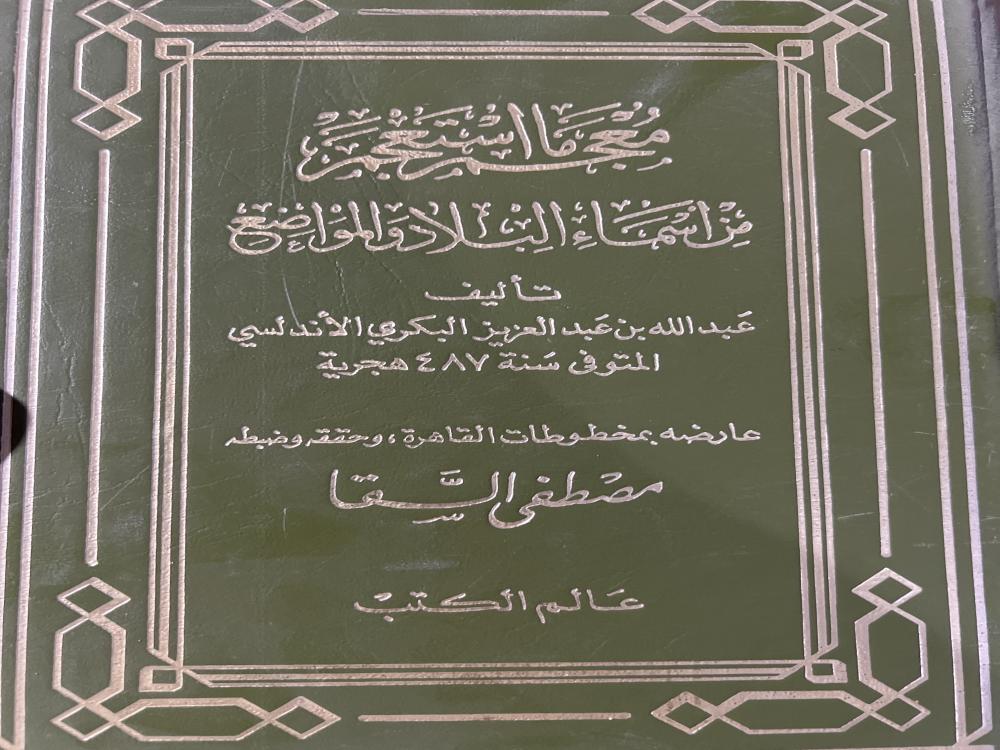 مُعْجَم مَا اسْتَعْجَمَ
مِنْ اسْمَاءِ الْبِلَادِ وَالمَوَاضِعِ
تأليف
عَبد الله بن عَبد العزيز البكري الأندلسي
المتوفى سَنة ٤٨٧ هجرية
عارضه بمخطوطات القاهرة، وحققه وضبطه
مصْطفى السَّقا
عَالم الكتبْ